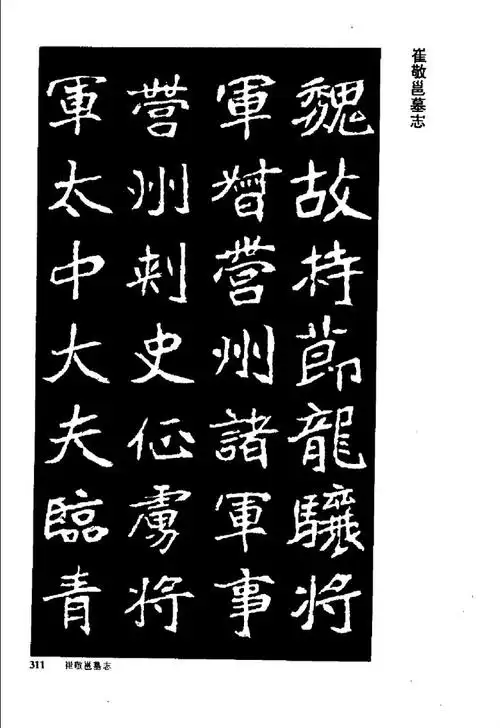 崔敬邕墓志
魏故持節龍驤將
軍督營州諸軍事
營州刺史征虜將
軍太中大夫臨青
311 崔敬邕墓志